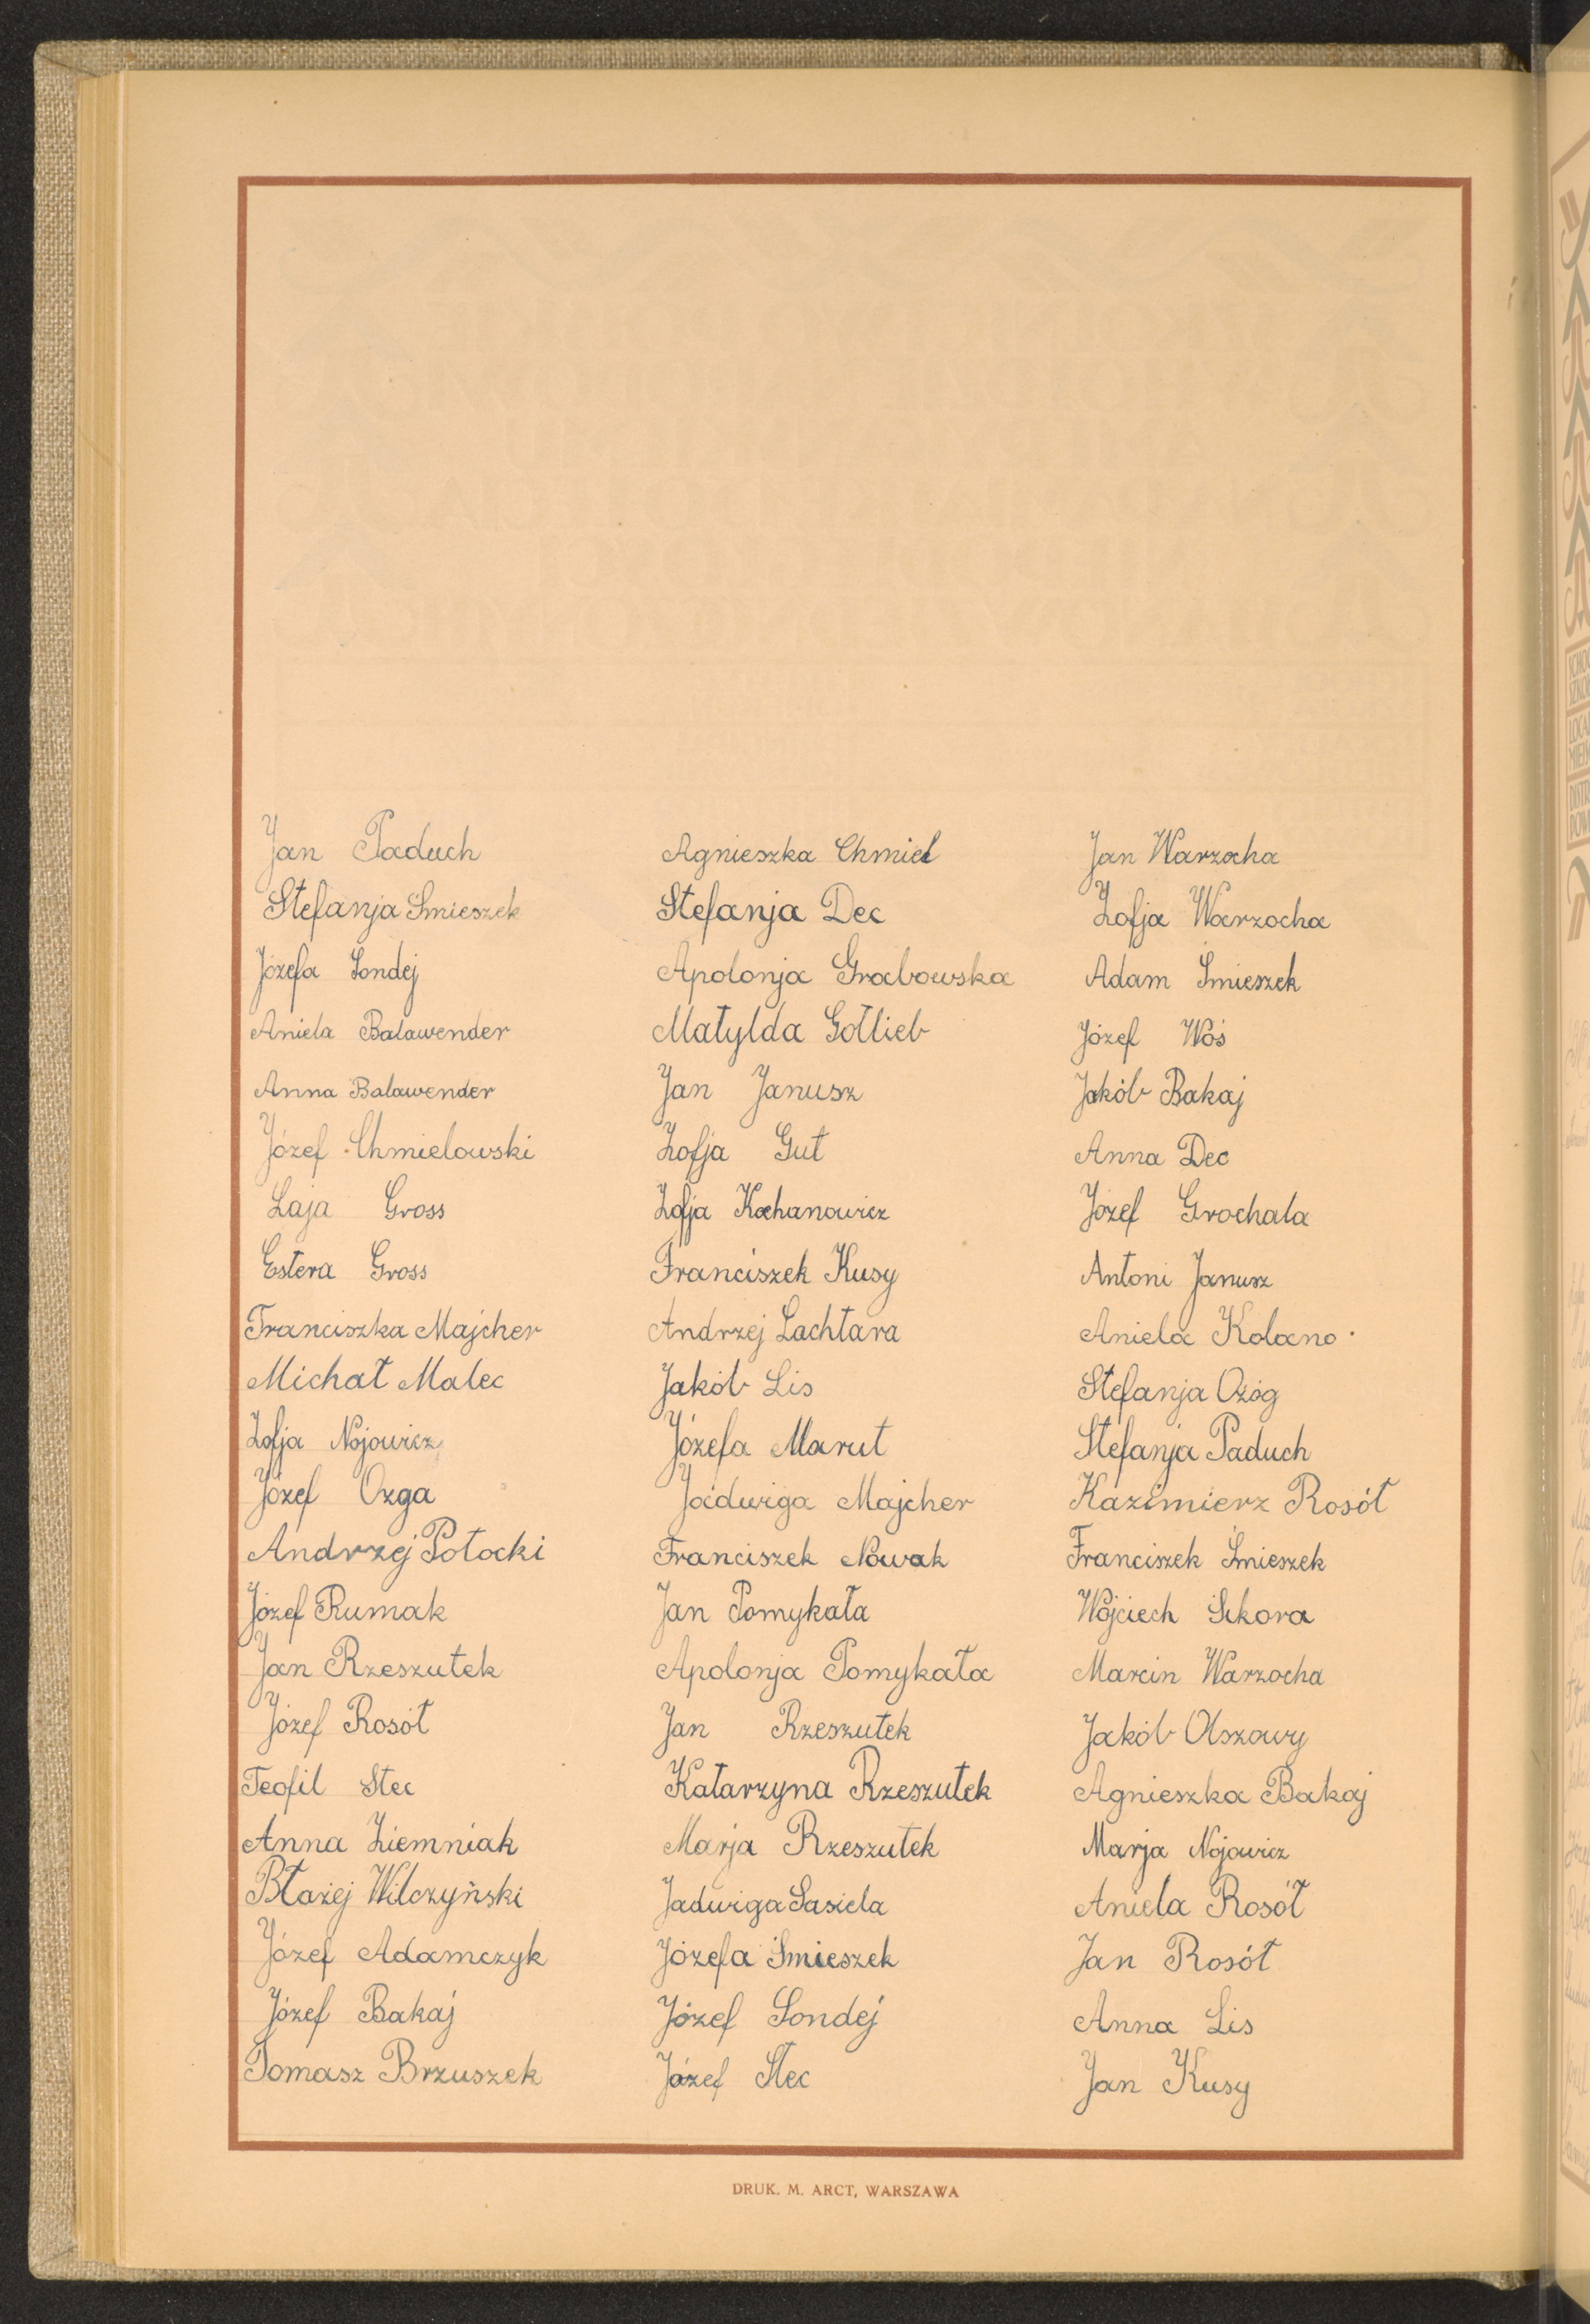 Jan Paduch
Stefanja Smieszek
Józefa Sondej
Aniela Balawender
Anna Balawender
Józef Chmielowski
Laja Gross
Estera Gross
Franciszka Majcher
Michał Malec
Zofja Nojowicz
Józef Ozga
Andrzej Potocki
Józef Rumak
Jan Rzeszutek
Józef Rosół
Teofil Stec
Anna Ziemniak
Błażej Wilczyński
Józef Adamczyk
Józef Bakaj
Tomasz Brzuszek
Agnieszka Chmiel
Stefanja Dec
Apolonja Grabowska
Matylda Gotlieb
Jan Janusz
Zofja Gut
Zofja Kochanowicz
Franciszek Kusy
Andrzej Lachtara
Jakób Lis
Józefa Marut
Jadwiga Majcher
Franciszek Nowak
Jan Pomykała
Apolonja Pomykała
Jan Rzeszutek
Katarzyna Rzeszutek
Marja Rzeszutek
Jadwiga Sasiela
Józefa Śmieszek
Józef Sondej
Józef Stec
Jan Warzocha
Zofja Warzocha
Adam Śmieszek
Józef Woś
Jakób Bakaj
Anna Dec
Józef Grochala
Antoni Janusz
Aniela Kolano
Stefanja Ożóg
Stefanja Paduch
Kazimierz Rosół
Franciszek Śmieszek
Wojciech Sikora
Marcin Warzocha
Jakób Olszowy
Agnieszka Bakaj
Marja Nojowicz
Aniela Rosół
Jan Rosół
Anna Lis
Jan Kusy
DRUK. M. ARCT, WARSZAWA